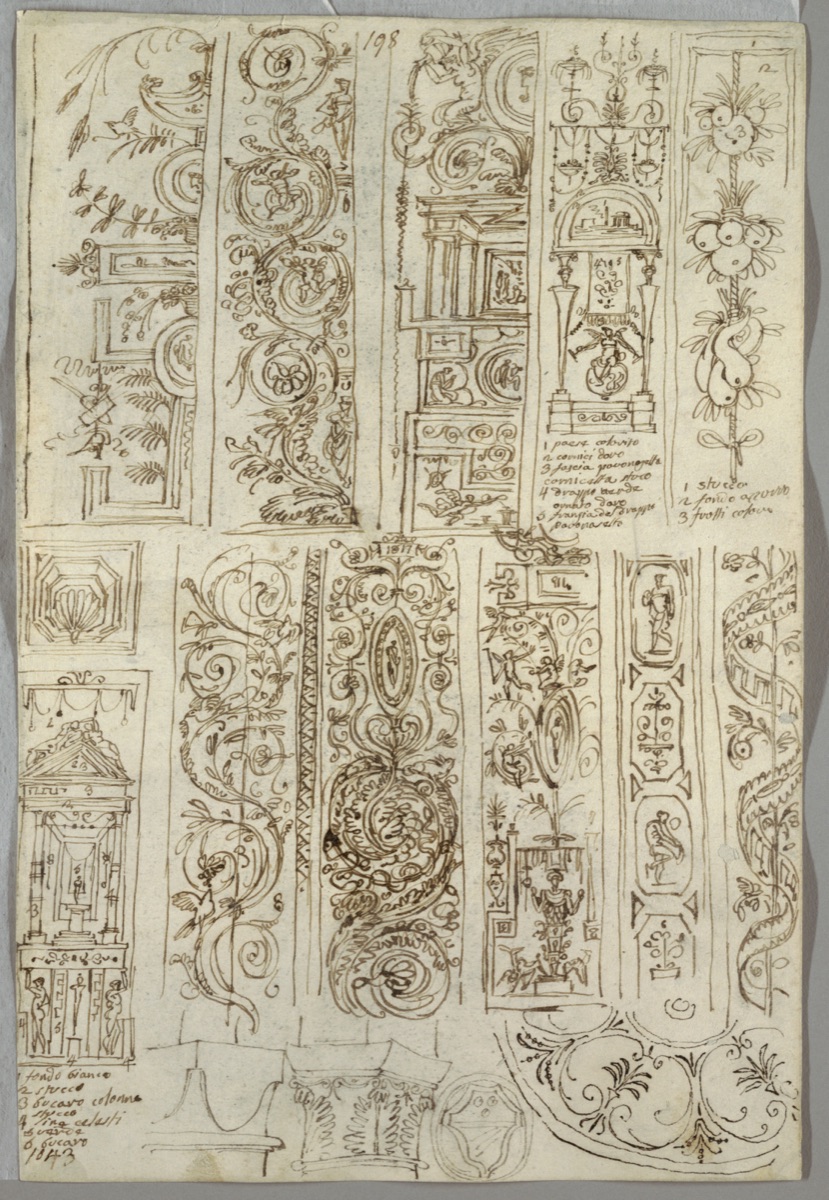 198
1
2
1 paese colorito
2 cornici doro
3 fascia pavonazetta
cornicetta stuco
4 drappo verde
ornato doro
5 frangia del drappo
pavonazetto
1 stucco
2 fondo azurro
3 frutti colori
1 fondo bianco
2 stucco
3 bucaro colonne
stucco
4 tina celesti
5 verde
6 bucaro
1843